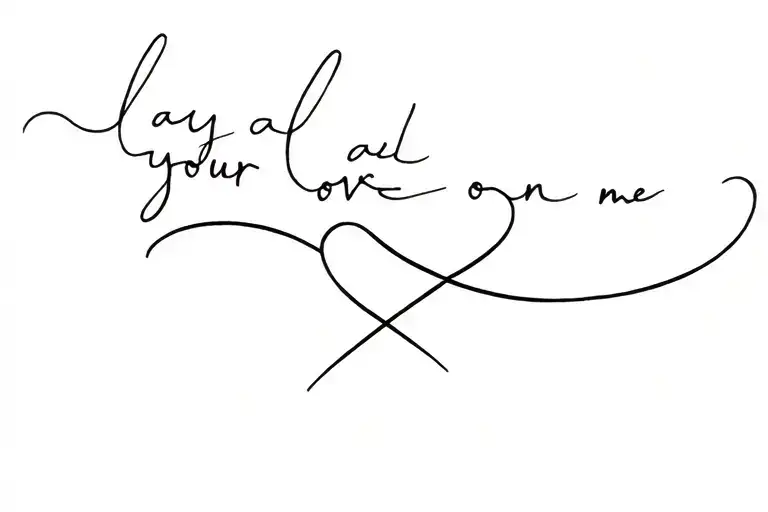 lay al ad
your love on me